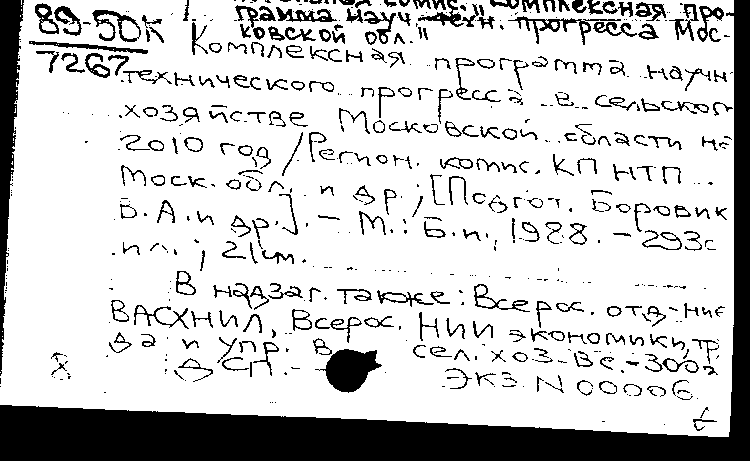 комис. "Комплексная про-
грамма науч.-техн. прогресса Мос-
ковской обл."
89-50К
7267
Комплексная программа научн
технического прогресса в сельском
хозяйстве Московской области на
2010 год / Регион. комис. КП НТП
Моск. обл. и др.; [Подгот. Боровик
В.А. и др.]. - М.: Б.и., 1988. - 293с
ил.; 21см.
В надзаг. также: Всерос. отд-ние
ВАСХНИЛ, Всерос. НИИ экономики, тр
да и упр. в сел. хоз-ве. - 300
ДСП. -
ЭКЗ. N 00006